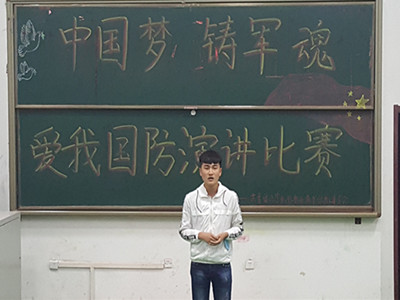 中国梦 铸军魂
爱我国防演讲比赛